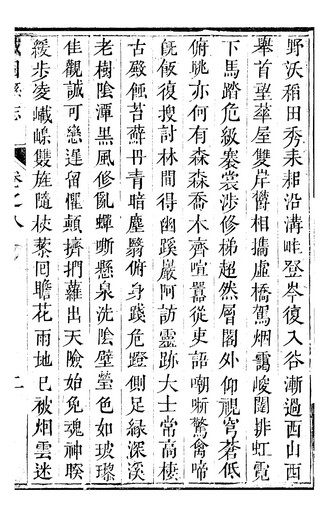 野沃稻田秀耒耜沿溝畦登岑復入谷漸過西山西
舉首望葦屋雙岸欝相搆虛橋駕烟靄峻闥排虹霓
下馬踏危級褰裳涉修梯超然層閣外仰視穹蒼低
俯眺亦何有森森喬木齊喧囂從吏語嘲哳驚禽啼
旣飯復搜討林間得幽蹊巖阿訪靈跡大士常高棲
古殿蝕苔蘚丹青暗塵翳俯身踐危磴側足緣深溪
老樹陰潭黑風修亂蟬嘶懸泉洗陰壁瑩色如玻瓈
佳觀誠可戀遅留懼顛擠捫蘿出天險始免魂神睽
緩步凌巇嵲雙旌隨杖藜回瞻花雨地已被烟雲迷
卷之八
二